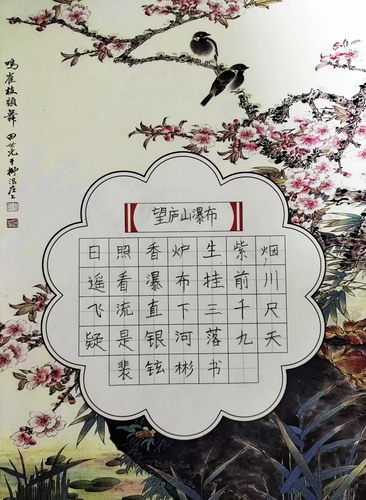 望庐山瀑布
日照香炉生紫烟
遥看瀑布挂前川
飞流直下三千尺
疑是银河落九天
裴铉彬书
鸣雀枝头舞